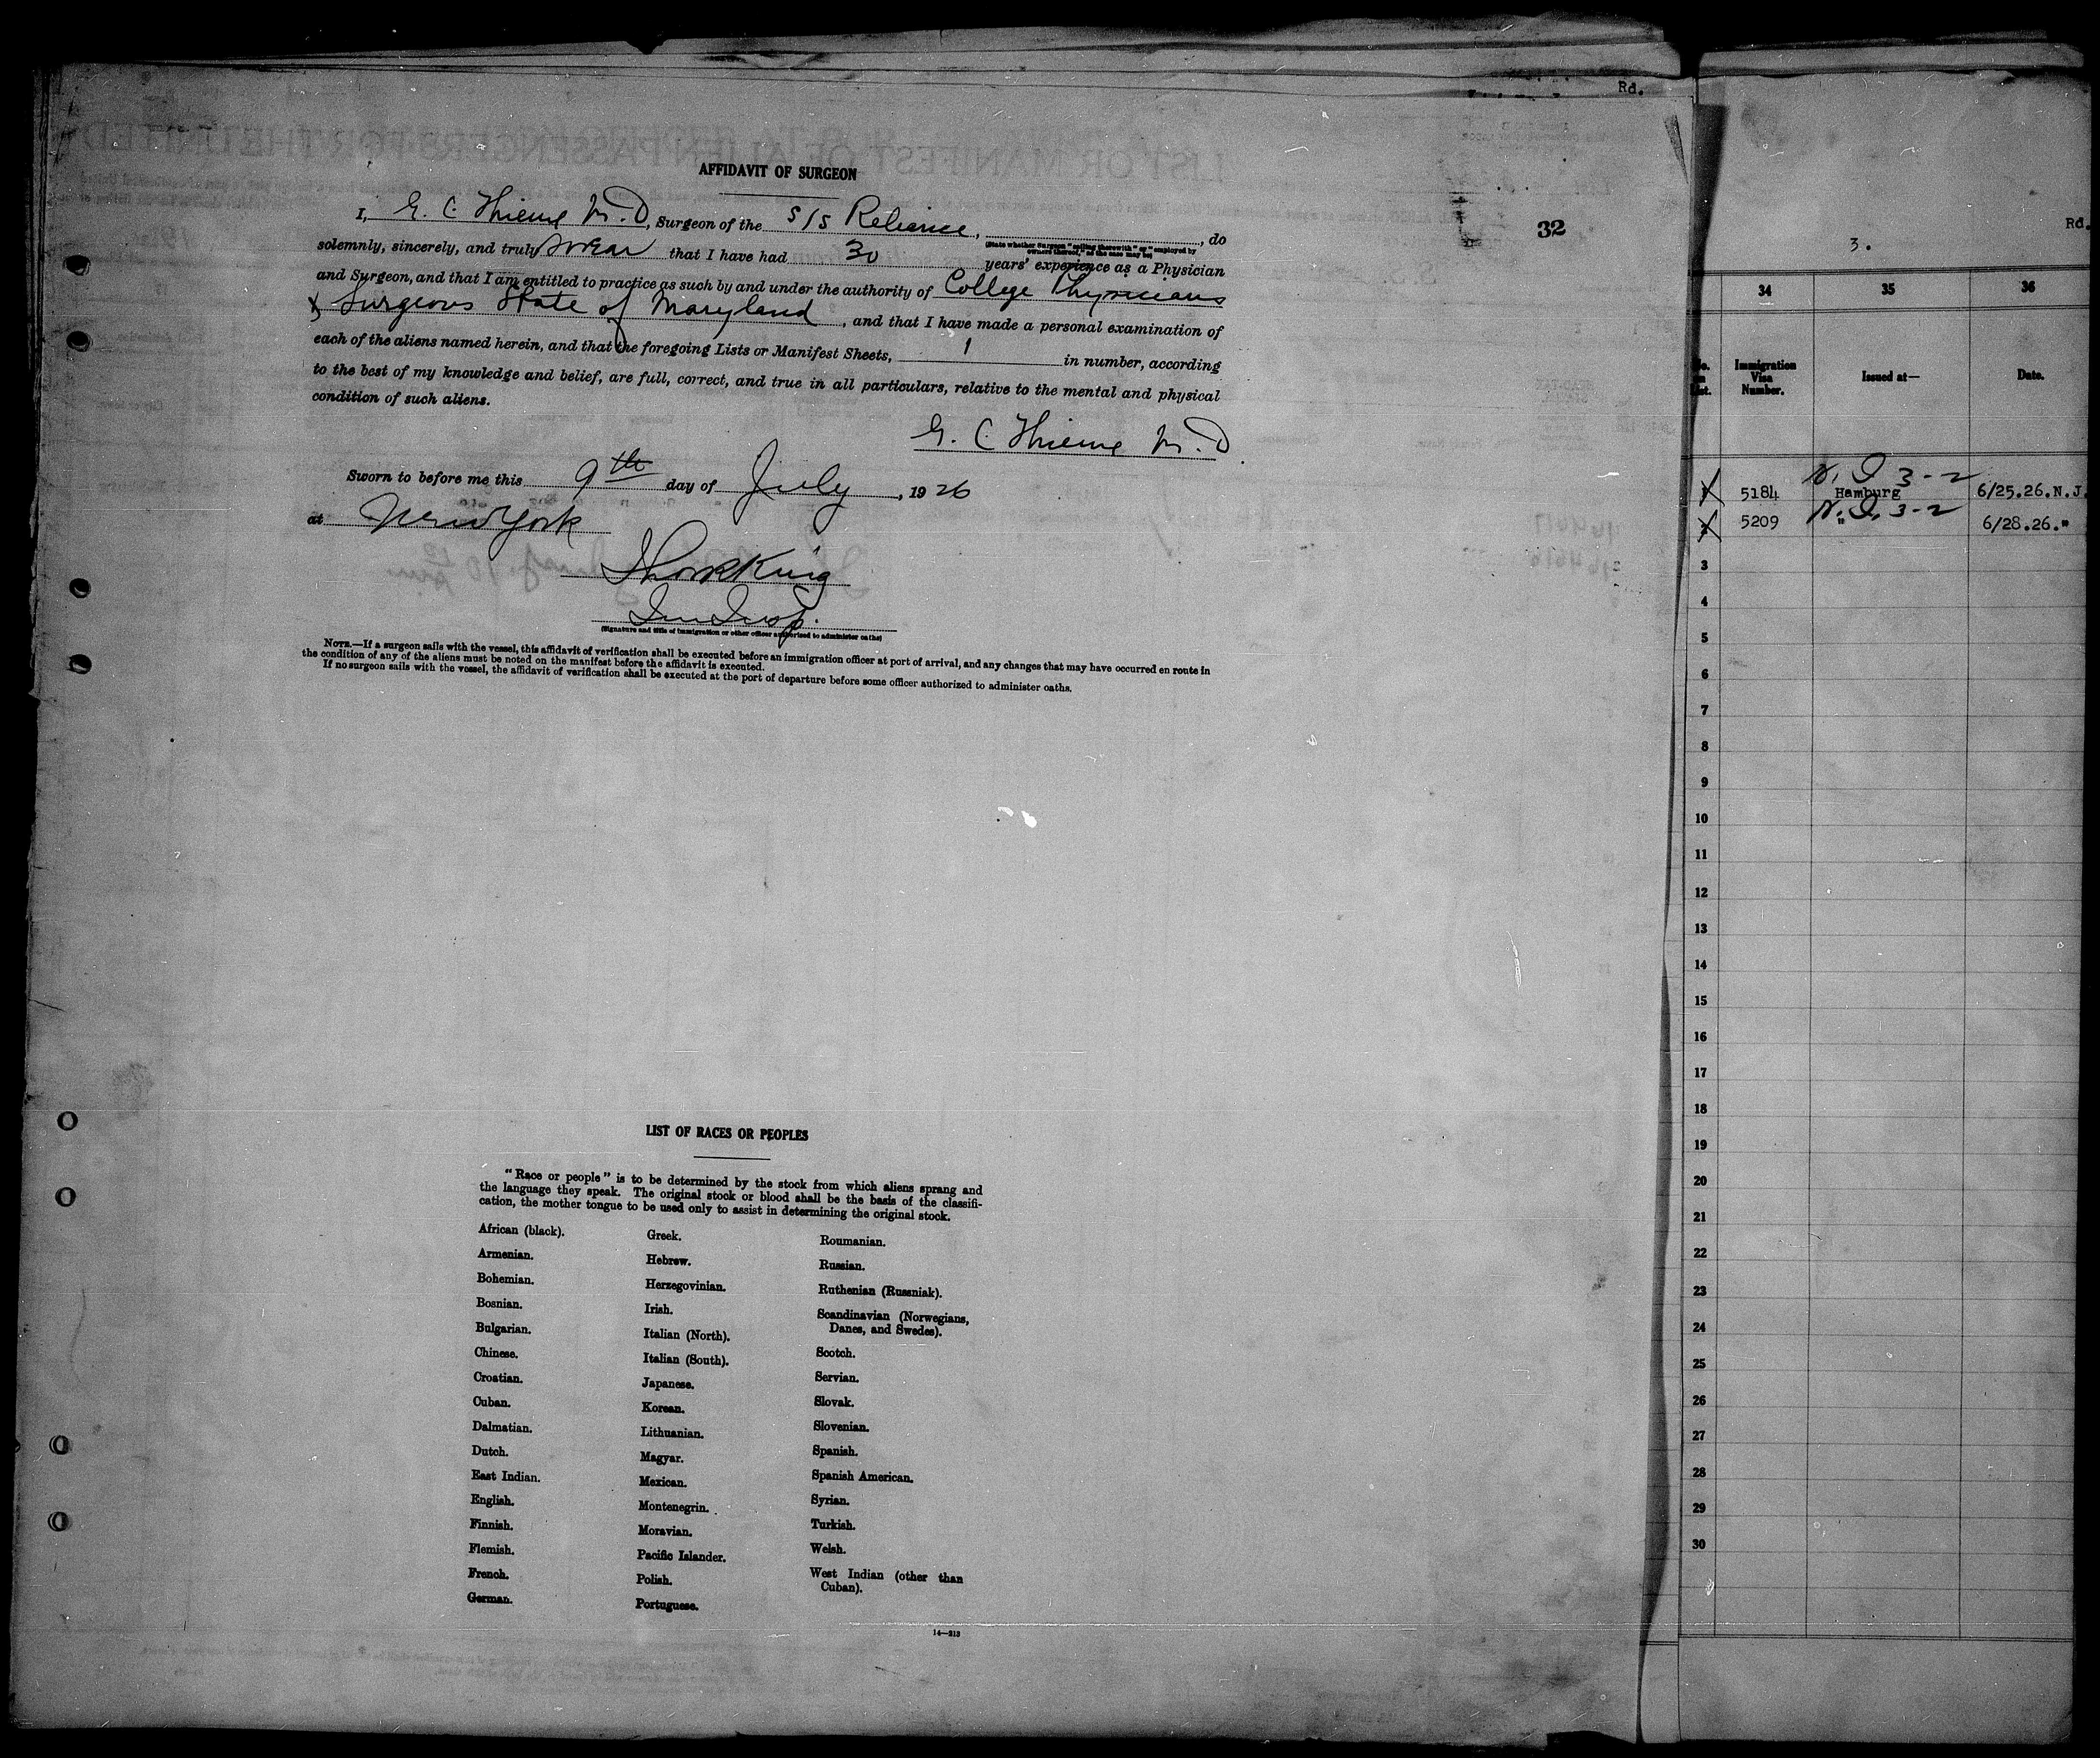 Rd.
AFFIDAVIT OF SURGEON
I, G. C. Thieme M.D., Surgeon of the S/S Reliance, , do
(State whether Surgeon "sailing therewith" or "employed by
owners thereof," as the case may be)
solemnly, sincerely, and truly swear that I have had 30 years' experience as a Physician
and Surgeon, and that I am entitled to practice as such by and under the authority of College Physicians
& Surgeons State of Maryland, and that I have made a personal examination of
each of the aliens named herein, and that the foregoing Lists or Manifest Sheets, 1 in number, according
to the best of my knowledge and belief, are full, correct, and true in all particulars, relative to the mental and physical
condition of such aliens.
G. C. Thieme M.D.
Sworn to before me this 9th day of July, 1926
at New York
Imm Insp.
(Signature and title of immigration or other officer authorized to administer oaths)
NOTE.—If a surgeon sails with the vessel, this affidavit of verification shall be executed before an immigration officer at port of arrival, and any changes that may have occurred en route in
the condition of any of the aliens must be noted on the manifest before the affidavit is executed.
If no surgeon sails with the vessel, the affidavit of verification shall be executed at the port of departure before some officer authorized to administer oaths.
32
LIST OF RACES OR PEOPLES
"Race or people" is to be determined by the stock from which aliens sprang and
the language they speak. The original stock or blood shall be the basis of the classifi-
cation, the mother tongue to be used only to assist in determining the original stock.
African (black).
Armenian.
Bohemian.
Bosnian.
Bulgarian.
Chinese.
Croatian.
Cuban.
Dalmatian.
Dutch.
East Indian.
English.
Finnish.
Flemish.
French.
German.
Greek.
Hebrew.
Herzegovinian.
Irish.
Italian (North).
Italian (South).
Japanese.
Korean.
Lithuanian.
Magyar.
Mexican.
Montenegrin.
Moravian.
Pacific Islander.
Polish.
Portuguese.
Roumanian.
Russian.
Ruthenian (Russniak).
Scandinavian (Norwegians,
Danes, and Swedes).
Scotch.
Servian.
Slovak.
Slovenian.
Spanish.
Spanish American.
Syrian.
Turkish.
Welsh.
West Indian (other than
Cuban).
14—213
Rd.
3.
34 35 36
Immigration
Visa
Number.
Issued at—
Date.
N. Q 3-2
1 5184 Hamburg 6/25.26.N.J.
N. Q. 3-2
2 5209 " 6/28.26."
3
4
5
6
7
8
9
10
11
12
13
14
15
16
17
18
19
20
21
22
23
24
25
26
27
28
29
30